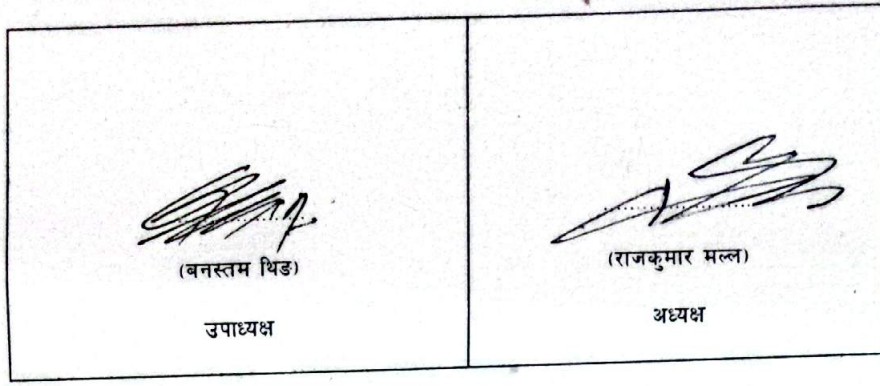 (बनस्तम थिङ)
उपाध्यक्ष
(राजकुमार मल्ल)
अध्यक्ष